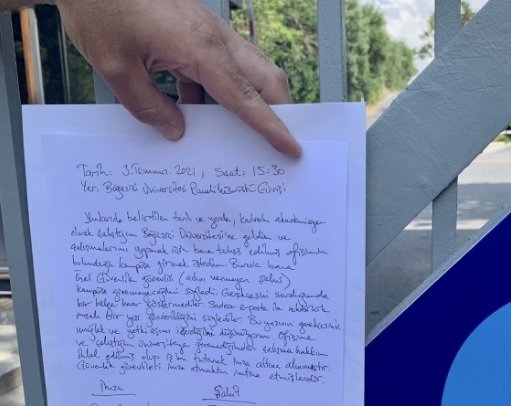 Tarih: 3 Temmuz 2021, Saat: 15:30
Yer: Boğaziçi Üniversitesi Rumelihisarüstü Girişi
Yukarıda belirtilen tarih ve yerde, kadrolu akademisyen
olarak çalıştığım Boğaziçi Üniversitesi'ne geldim ve
çalışmalarımı yapmak için bana tahsis edilmiş ofisimin
bulunduğu kampüse girmek istedim. Burada bana
özel güvenlik görevlisi (adını vermeyen şahıs)
kampüse giremeyeceğimi söyledi. Gerekçesini sorduğumda
bir belge bana göstermediler. Sadece e-posta ile rektörlük
bir yazı gönderildiğini söylediler. Bu yazının gerekçesinin
ve yetki aşımı içerdiğini düşünüyorum. Ofisime
ve çalıştığım üniversiteye giremediğimden çalışma hakkım
ihlal edilmiş olup iş bu tutanak imza altına alınmıştır.
Güvenlik görevlileri imza etmekten imtina etmişlerdir.
İmza Şahit